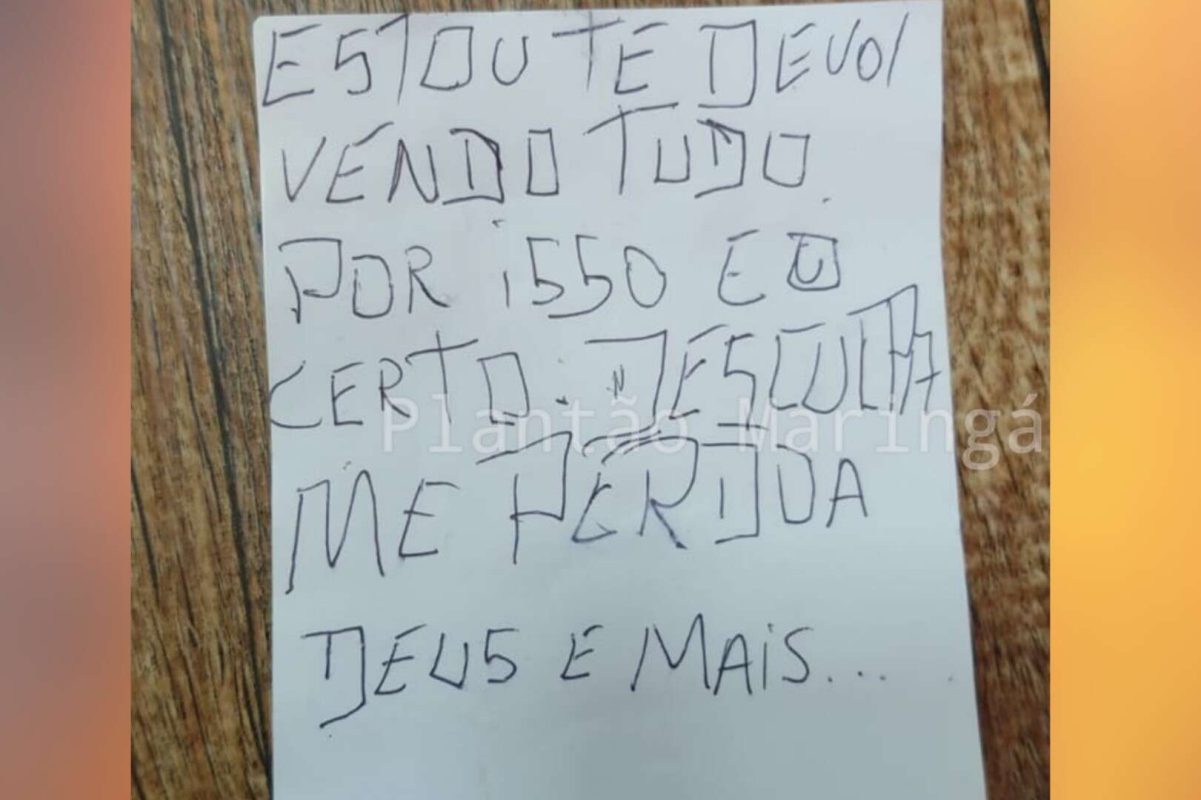 ESTOU TE DEVOL
VENDO TUDO.
POR ISSO E O
CERTO. DESCULPA
Plantão Maringá
ME PERDOA
DEUS E MAIS...